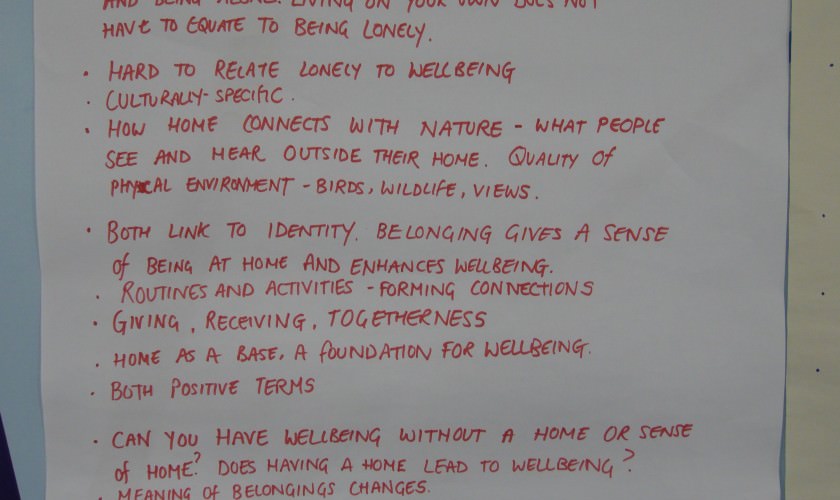 AND BEING ALONE. LIVING ON YOUR OWN DOES NOT
HAVE TO EQUATE TO BEING LONELY.
· HARD TO RELATE LONELY TO WELLBEING
· CULTURALLY-SPECIFIC.
· HOW HOME CONNECTS WITH NATURE - WHAT PEOPLE
SEE AND HEAR OUTSIDE THEIR HOME. QUALITY OF
PHYSICAL ENVIRONMENT - BIRDS, WILDLIFE, VIEWS.
· BOTH LINK TO IDENTITY. BELONGING GIVES A SENSE
OF BEING AT HOME AND ENHANCES WELLBEING.
· ROUTINES AND ACTIVITIES - FORMING CONNECTIONS
· GIVING, RECEIVING, TOGETHERNESS
· HOME AS A BASE, A FOUNDATION FOR WELLBEING.
· BOTH POSITIVE TERMS
· CAN YOU HAVE WELLBEING WITHOUT A HOME OR SENSE
OF HOME? DOES HAVING A HOME LEAD TO WELLBEING?
· MEANING OF BELONGINGS CHANGES.